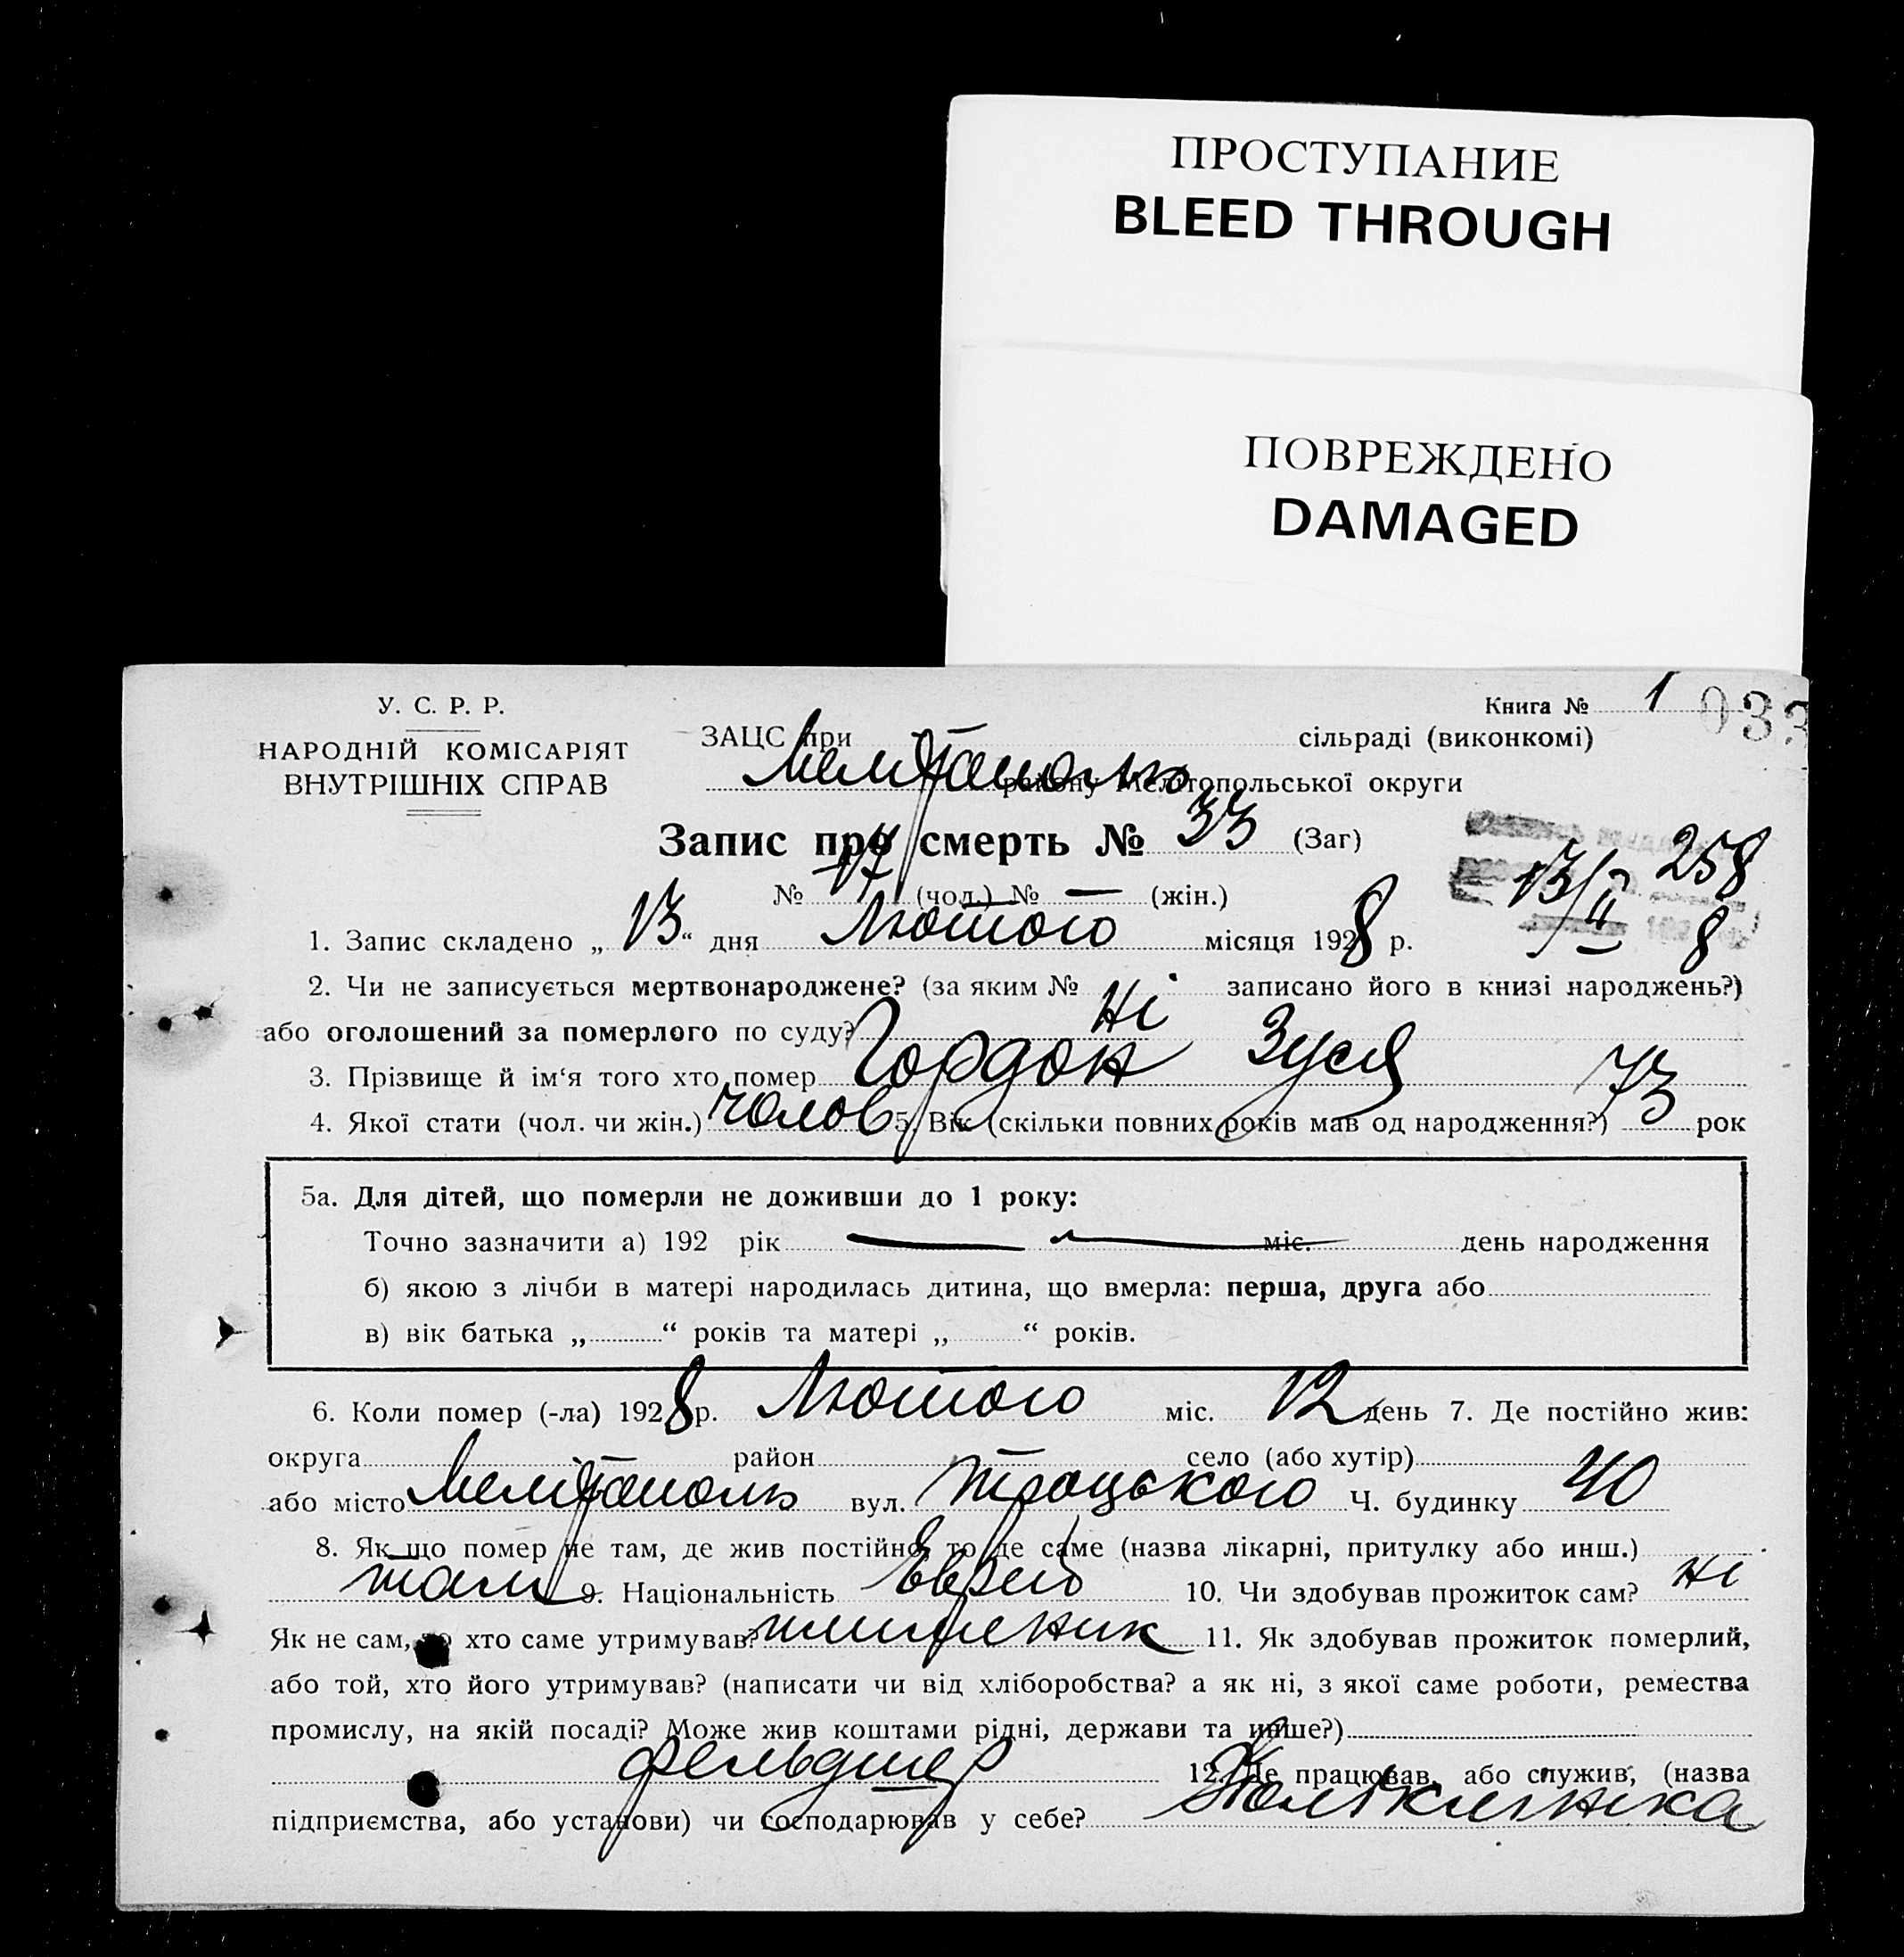 ПРОСТУПАНИЕ
BLEED THROUGH
ПОВРЕЖДЕНО
DAMAGED
У. С. Р. Р.
НАРОДНІЙ КОМІСАРІЯТ
ВНУТРІШНІХ СПРАВ
Книга № 1 033
ЗАЦС при сільраді (виконкомі)
Мелітополь району Мелітопольської округи
Запис про смерть № 33 (Заг)
№ 17 (чол.) № — (жін.)
258
13/II 8
1. Запис складено „13“ дня Лютого місяця 1928 р.
2. Чи не записується мертвонароджене? (за яким № записано його в книзі народжень?)
або оголошений за померлого по суду? Ні
3. Прізвище й ім‘я того хто помер Гордон Зуся
4. Якої стати (чол. чи жін.) чолов 5. Вік (скільки повних років мав од народження?) 73 рок
5а. Для дітей, що померли не доживши до 1 року:
Точно зазначити а) 192 рік — міс. день народження
б) якою з лічби в матері народилась дитина, що вмерла: перша, друга або
в) вік батька „ “ років та матері „ “ років.
6. Коли помер (-ла) 1928 р. Лютого міс. 12 день 7. Де постійно жив:
округа район — село (або хутір)
або місто Мелітополь вул. Троцького Ч. будинку 40
8. Як що помер не там, де жив постійно, то де саме (назва лікарні, притулку або инш.)
там 9. Національність Еврей 10. Чи здобував прожиток сам? Ні
Як не сам, хто саме утримував? 11. Як здобував прожиток померлий,
або той, хто його утримував? (написати чи від хліборобства? а як ні, з якої саме роботи, ремества
промислу, на якій посаді? Може жив коштами рідні, держави та инше?)
фельдшер 12. Де працював, або служив, (назва
підприємства, або установи) чи господарював у себе? Поліклініка